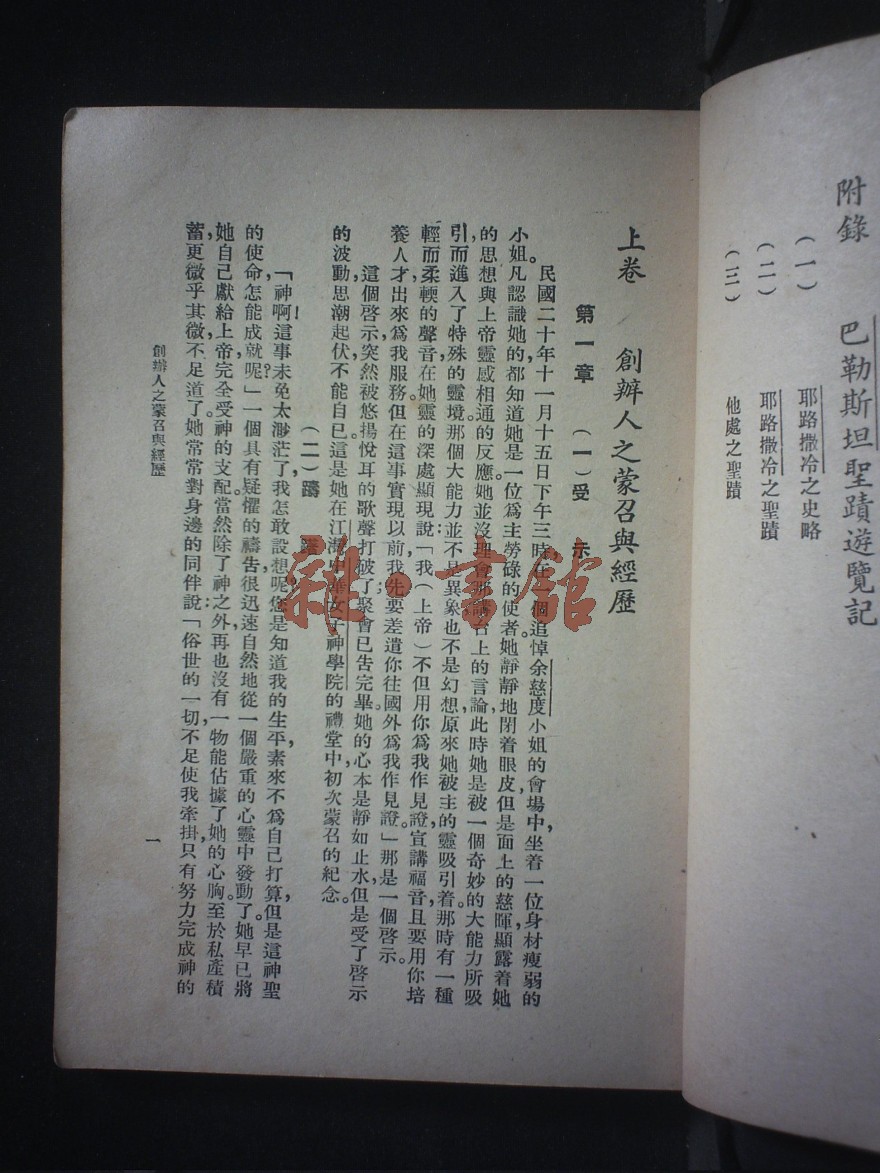 附錄 巴勒斯坦聖蹟遊覽記
(一) 耶路撒冷之史略
(二) 耶路撒冷之聖蹟
(三) 他處之聖蹟
上卷 創辦人之蒙召與經歷
第一章 (一)受示
民國二十年十一月十五日下午三時,在一個追悼余慈度小姐的會場中,坐着一位身材瘦弱的
小姐。凡認識她的都知道她是一位爲主勞碌的使者。她靜靜地閉着眼皮,但是面上的慈暉,顯露着她
的思想與上帝靈感相通的反應。她並沒理會那講台上的言論,此時她是被一個奇妙的大能力所吸
引,而進入了特殊的靈境。那個大能力並不是異象,也不是幻想,原來她被主的靈吸引着。那時有一種
輕而柔輭的聲音,在她靈的深處顯現說:「我(上帝)不但用你爲我作見證,宣講福音,且要用你培
養人才出來爲我服務,但在這事實現以前,我先要差遣你往國外爲我作見證。」那是一個啓示。
這個啓示突然被悠揚悅耳的歌聲打破了,聚會已吿完畢。她的心本是靜如止水,但是受了啓示
的波動,思潮起伏,不能自已。這是她在江灣中華女子神學院的禮堂中初次蒙召的紀念。
(二)躊躇
「神啊!這事未免太渺茫了,我怎敢設想呢?您是知道我的生平,素來不爲自己打算,但是這神聖
的使命怎能成就呢?」一個具有疑懼的禱吿,很迅速自然地從一個嚴重的心靈中發動了。她早已將
她自己獻給上帝,完全受神的支配。當然除了神之外,再也沒有一物能佔據了她的心胸。至於私產積
蓄,更微乎其微,不足道了。她常常對身邊的同伴說:「俗世的一切,不足使我牽掛,只有努力完成神的
創辦人之蒙召與經歷
一
雜·書館